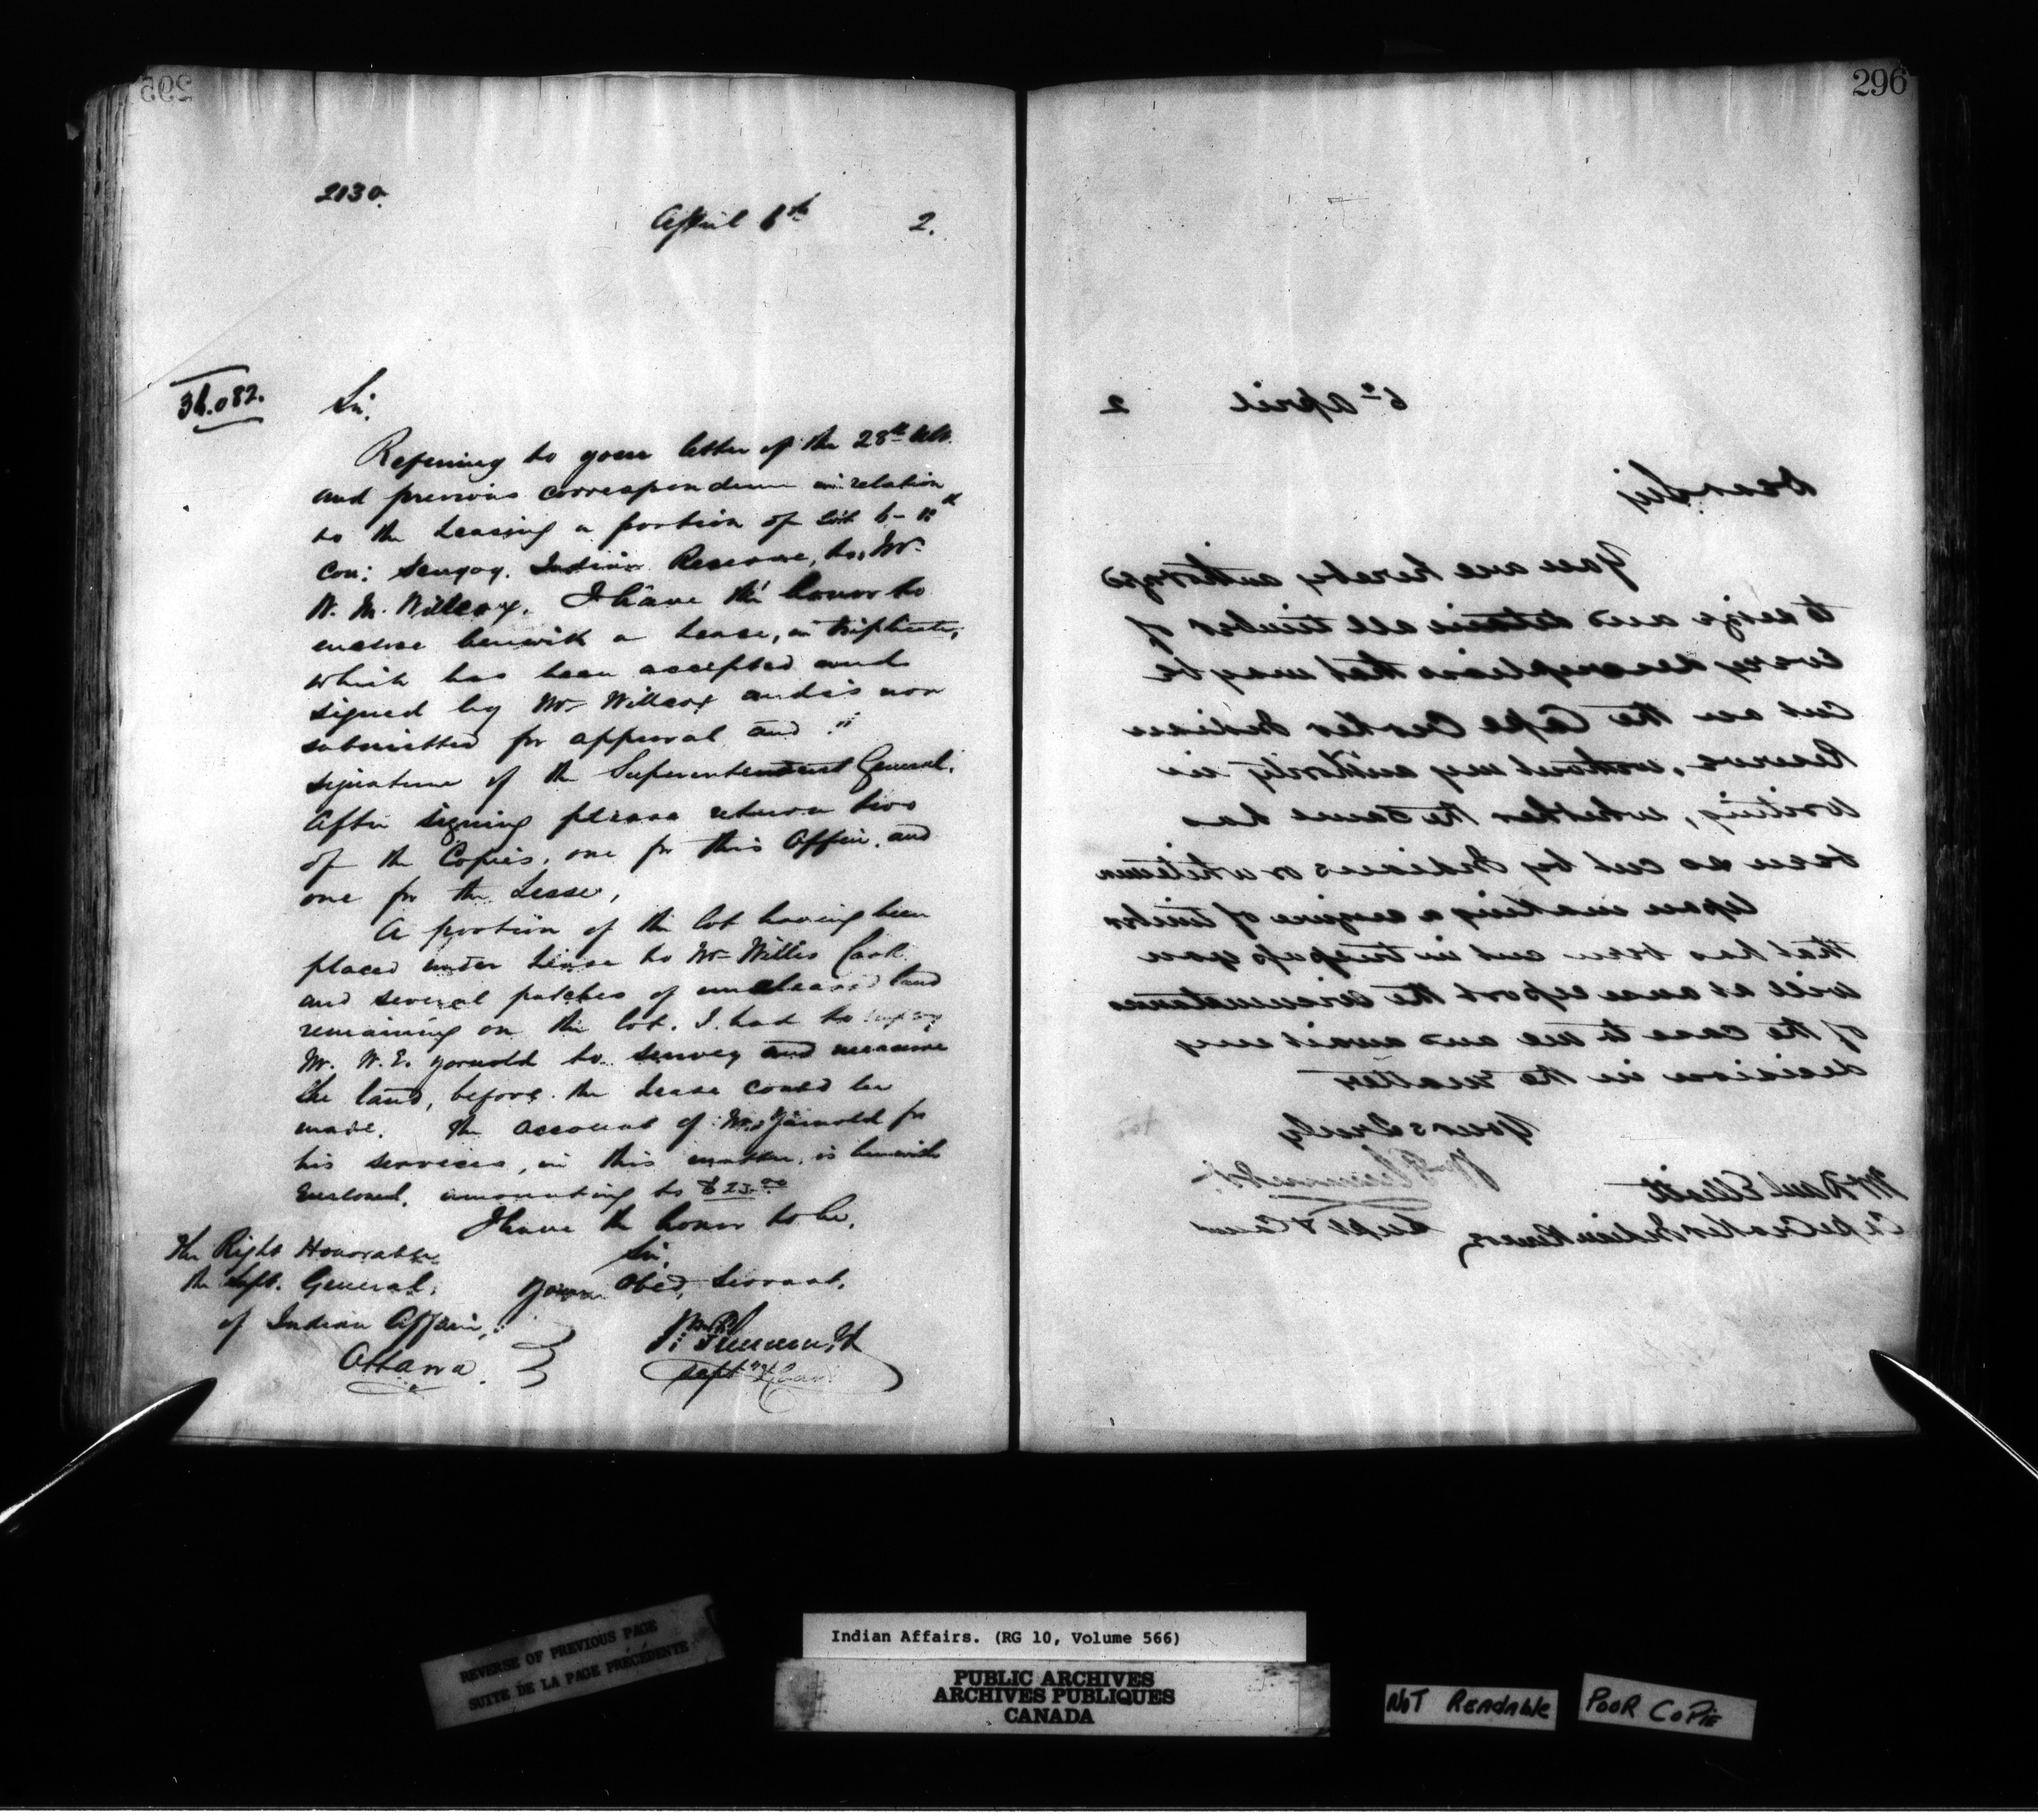 295
2130.
April 6th 2.
36.082.
Sir.
Referring to your letter of the 28th ult.
and previous correspondence in relation
to the Leasing a portion of Lot 6 -
Con: Scugog. Indian Reserve, to, Mr.
W. M. Willcox. I have the honor to
enclose herewith a Lease, in triplicate,
which has been accepted and
signed by Mr Willcox and is now
submitted for approval and
signature of the Superintendent General.
After signing please return two
of the Copies, one for this Office, and
one for the Lessee,
A portion of the lot having been
placed under Lease to Mr Willis
and several patches of uncleared land
remaining on the lot. I had to employ
Mr. W. E. Yarnold to survey and measure
the land, before the Lease could be
made. The account of Mr. Yarnold for
his services, in this matter, is herewith
Enclosed. amounting to
I have the honor to be,
Sir,
Your Obed, Servant,
The Right Honorable
the Supt. General,
of Indian Affairs,
Ottawa.
Wm. Plummer
Supt
296
6th April 2
Dear Sir
You are hereby authorized
to seize and detain all timber of
every description that may be
cut on the Cape Croker Indian
Reserve, without my authority in
writing, whether the same has
been so cut by Indians or whitemen
Upon making a seizure of timber
that has been cut in trespass you
will at once report the circumstances
of the case to me and await my
decision in the matter
Yours truly
Wm Plummer
Supt & Comr
Mr Paul Elliott
Cape Croker Indian Reserve
REVERSE OF PREVIOUS PAGE
SUITE DE LA PAGE PRÉCÉDENTE
Indian Affairs. (RG 10, Volume 566)
PUBLIC ARCHIVES
ARCHIVES PUBLIQUES
CANADA
NOT READABLE
POOR COPIE